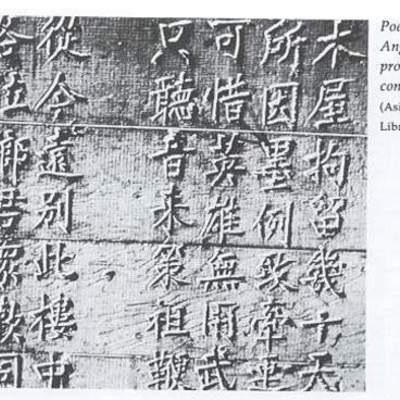 木屋拘留幾十天
所因墨例致牽連
可惜英雄無用武
只聽音來策祖鞭
從今遠別此樓中
各位鄉君眾歡同
Poe
Ang
pro
con
(Asi
Libr